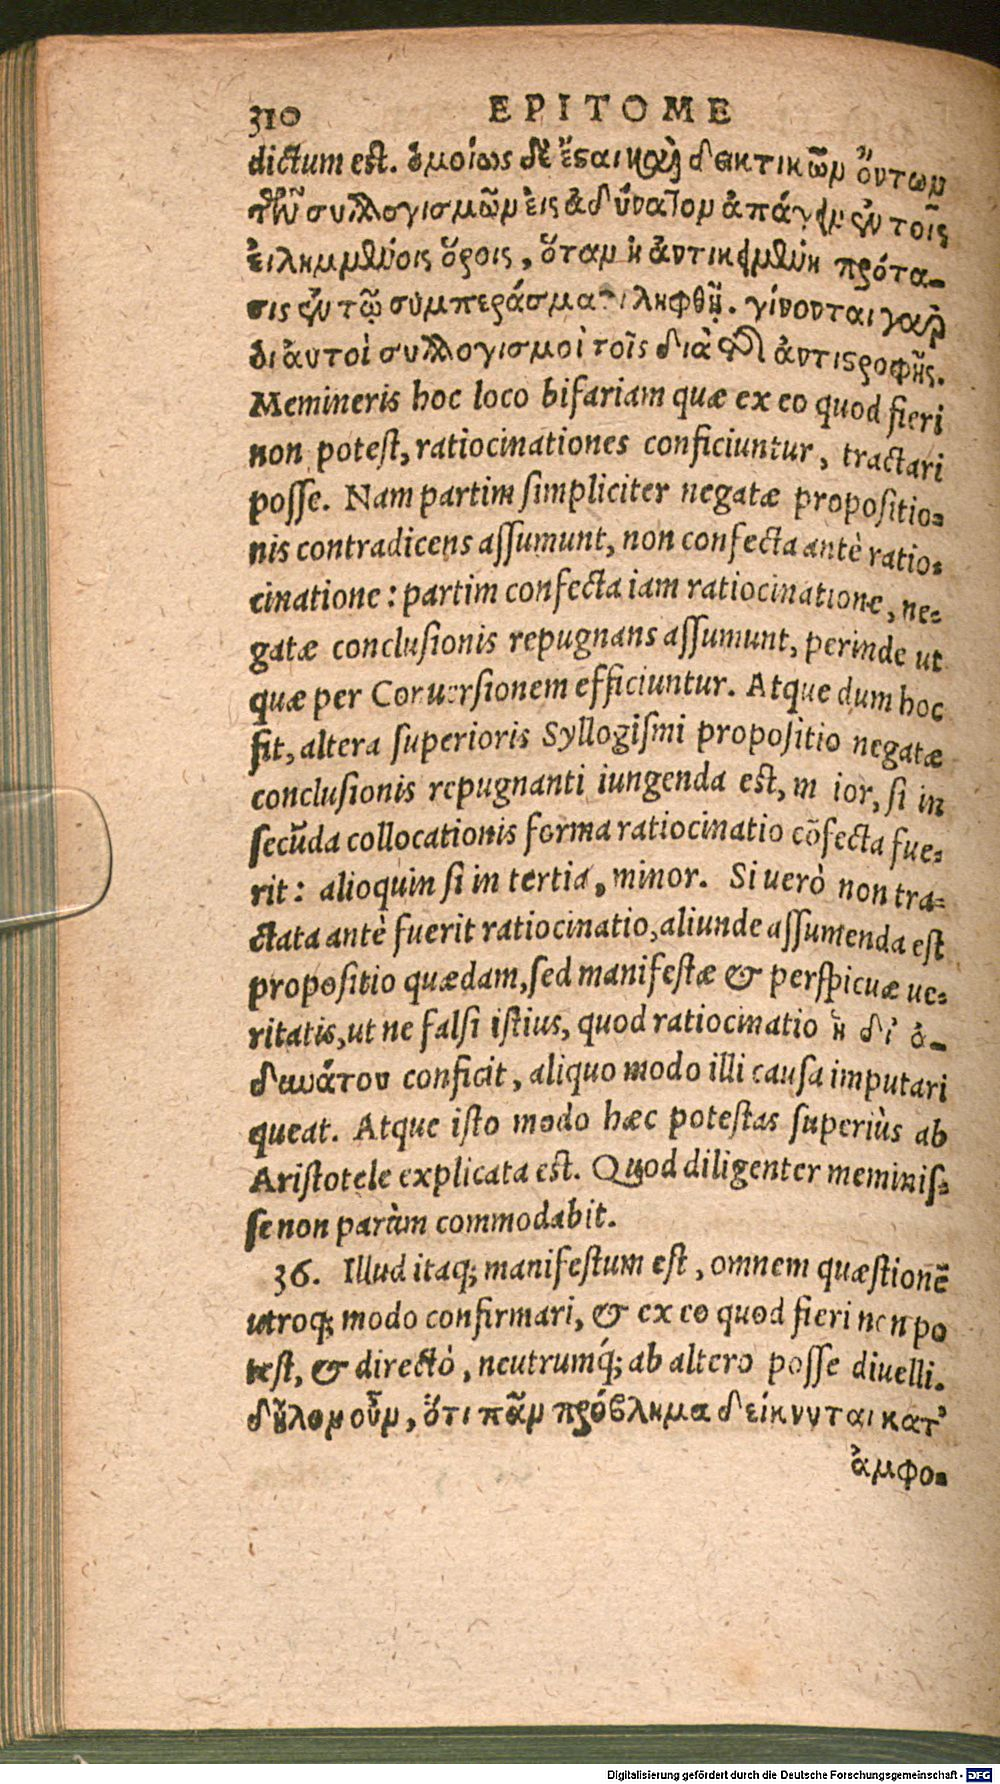 310 EPITOME
dictum est. ὁμοίως δὲ ἔσαι καὶ δεικτικῶν ὄντων
τῶν συλλογισμῶν εἰς ἀδύνατον ἀπάγειν ἐν τοῖς
εἰλημμένοις ὅροις, ὅταν ἡ ἀντικειμένη πρότα-
σις ἐν τῷ συμπεράσματι ληφθῇ. γίνονται γὰρ
ὁι ἀυτοὶ συλλογισμοὶ τοῖς διὰ τῆς ἀντιστροφῆς.
Memineris hoc loco bifariam quæ ex eo quod fieri
non potest, ratiocinationes conficiuntur, tractari
posse. Nam partim simpliciter negatæ propositio=
nis contradicens assumunt, non confecta antè ratio=
cinatione: partim confecta iam ratiocinatione, ne=
gatæ conclusionis repugnans assumunt, perinde ut
quæ per Conuersionem efficiuntur. Atque dum hoc
fit, altera superioris Syllogismi propositio negatæ
conclusionis repugnanti iungenda est, m ior, si in
secūda collocationis forma ratiocinatio cōfecta fue=
rit: alioquin si in tertia, minor. Si uerò non tra=
ctata antè fuerit ratiocinatio, aliunde assumenda est
propositio quædam, sed manifestæ & perspicuæ ue=
ritatis, ut ne falsi istius, quod ratiocinatio ἡ δἰ ἀ-
δυνάτου conficit, aliquo modo illi causa imputari
queat. Atque isto modo hæc potestas superiùs ab
Aristotele explicata est. Quod diligenter meminis=
se non parùm commodabit.
36. Illud itaq; manifestum est, omnem quæstionē
utroq; modo confirmari, & ex eo quod fieri non po
test, & directò, neutrumq́; ab altero posse diuelli.
δῆλον οὖν, ὅτι πᾶν πρόβλημα δείκνυται κατ'
ἀμφο=
Digitalisierung gefördert durch die Deutsche Forschungsgemeinschaft - DFG